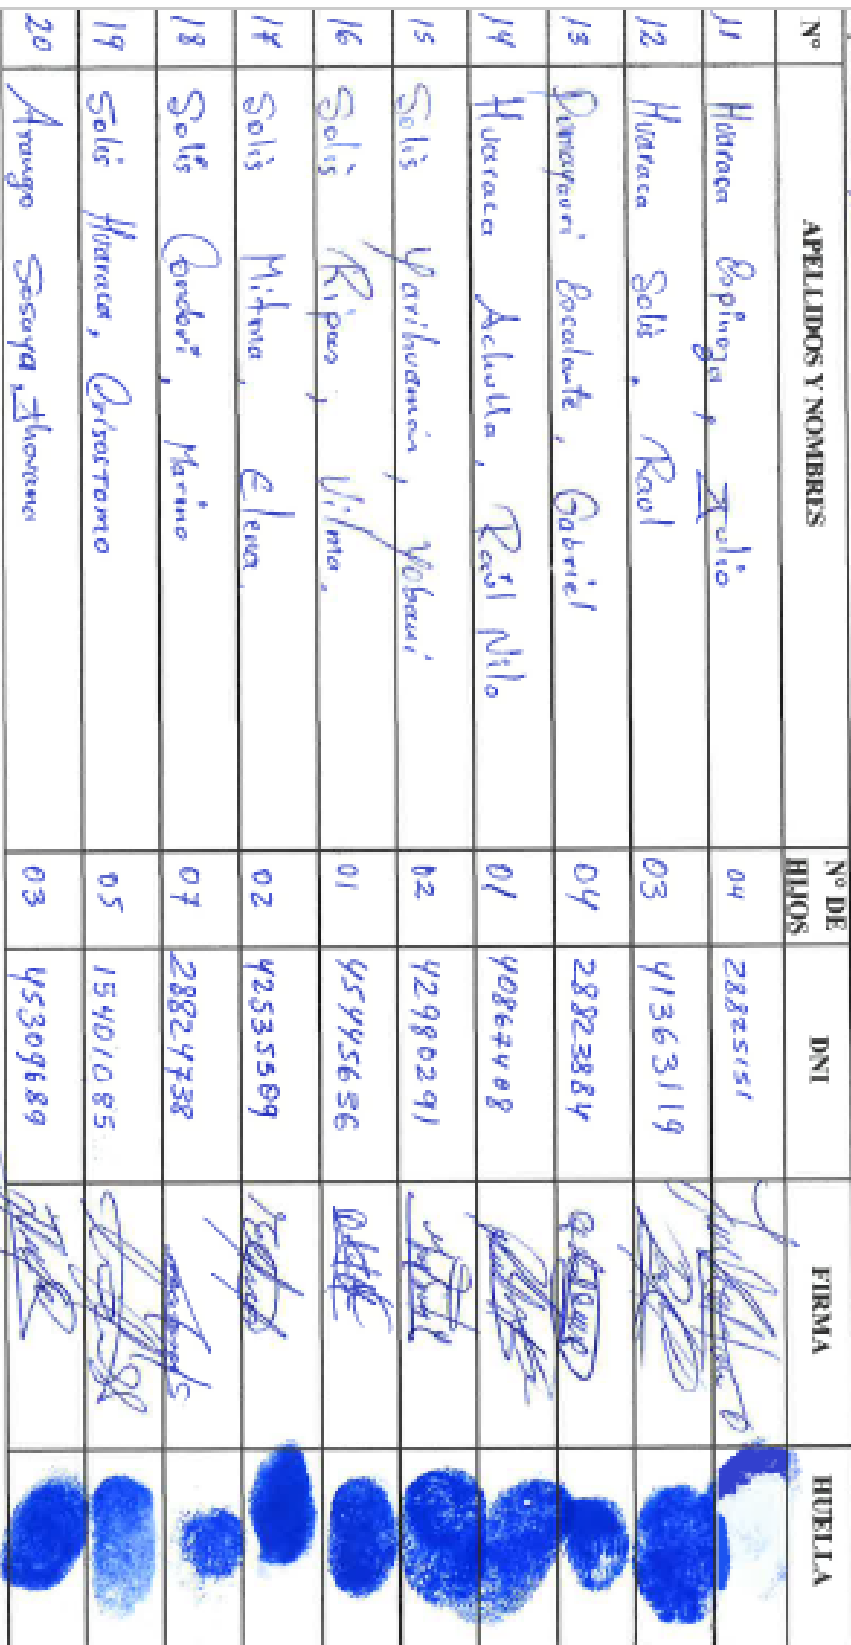 Nº APELLIDOS Y NOMBRES Nº DE HIJOS DNI FIRMA HUELLA
11 Huaraca Espinoza, Julio 04 28825151
12 Huaraca Solis, Raul 03 41363119
13 Pumayauri Escalante, Gabriel 04 28823884
14 Huaraca Achulla, Raúl Nilo 01 40867408
15 Solis Yarihuamán, Yobani 02 42980291
16 Solis Ripas, Vilma, 01 45445656
17 Solis Mitma, Elena, 02 42535589
18 Solis Condori, Marino 07 28824738
19 Solis Huaraca, Crisostomo 05 15401085
20 Arango Sesaya 03 45309689